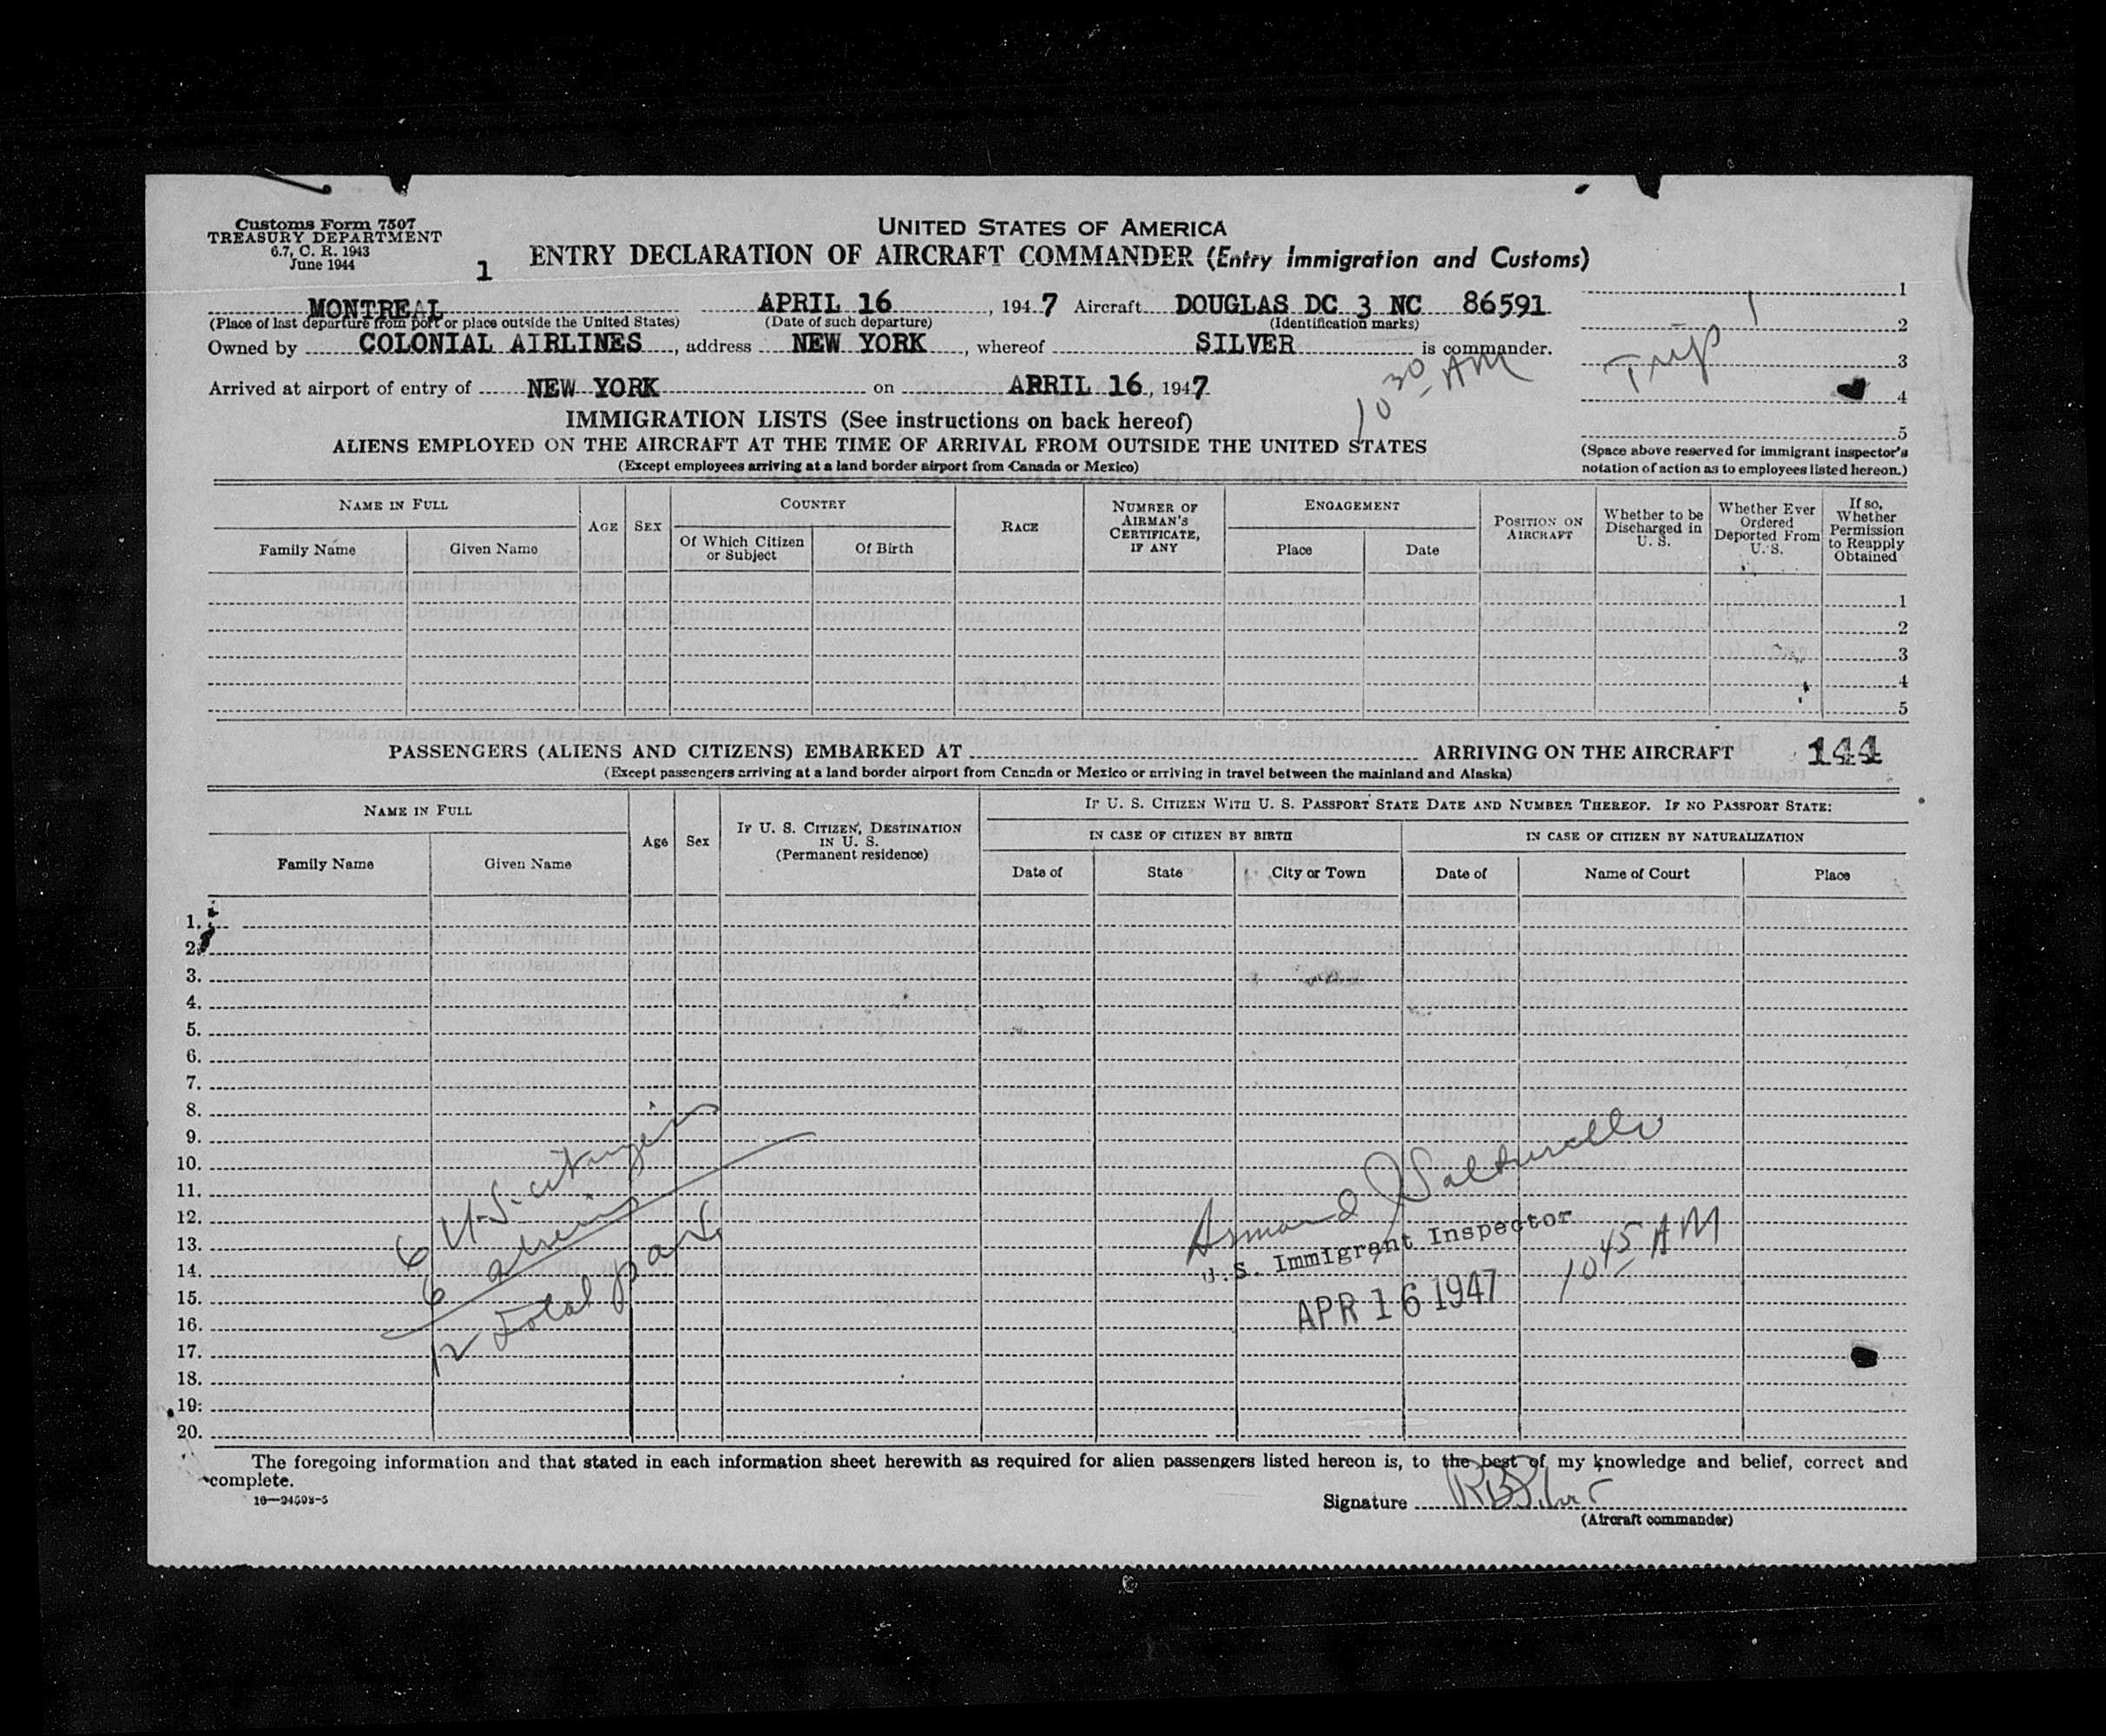 Customs Form 7507
TREASURY DEPARTMENT
6.7, C. R. 1943
June 1944
1
UNITED STATES OF AMERICA
ENTRY DECLARATION OF AIRCRAFT COMMANDER (Entry Immigration and Customs)
MONTREAL APRIL 16, 1947 Aircraft DOUGLAS DC 3 NC 86591
(Place of last departure from port or place outside the United States) (Date of such departure) (Identification marks)
Owned by COLONIAL AIRLINES, address NEW YORK, whereof SILVER is commander.
Arrived at airport of entry of NEW YORK on APRIL 16, 1947
10 30 AM
Trip 1
1
2
3
4
5
(Space above reserved for immigrant inspector's
notation of action as to employees listed hereon.)
IMMIGRATION LISTS (See instructions on back hereof)
ALIENS EMPLOYED ON THE AIRCRAFT AT THE TIME OF ARRIVAL FROM OUTSIDE THE UNITED STATES
(Except employees arriving at a land border airport from Canada or Mexico)
NAME IN FULL
Family Name Given Name
AGE
SEX
COUNTRY
Of Which Citizen or Subject
Of Birth
RACE
NUMBER OF AIRMAN'S CERTIFICATE, IF ANY
ENGAGEMENT
Place Date
POSITION ON AIRCRAFT
Whether to be Discharged in U. S.
Whether Ever Ordered Deported From U. S.
If so, Whether Permission to Reapply Obtained
1
2
3
4
5
PASSENGERS (ALIENS AND CITIZENS) EMBARKED AT ARRIVING ON THE AIRCRAFT 144
(Except passengers arriving at a land border airport from Canada or Mexico or arriving in travel between the mainland and Alaska)
NAME IN FULL
Family Name Given Name
Age
Sex
IF U. S. CITIZEN, DESTINATION IN U. S.
(Permanent residence)
IF U. S. CITIZEN WITH U. S. PASSPORT STATE DATE AND NUMBER THEREOF. IF NO PASSPORT STATE:
IN CASE OF CITIZEN BY BIRTH
Date of State City or Town
IN CASE OF CITIZEN BY NATURALIZATION
Date of Name of Court Place
1.
2.
3.
4.
5.
6.
7.
8.
9.
10.
11.
12.
13.
14.
15.
16.
17.
18.
19.
20.
6 U.S. citizens
6 aliens
12 Total
Armand J
U.S. Immigrant Inspector
APR 16 1947
10 45 AM
The foregoing information and that stated in each information sheet herewith as required for alien passengers listed hereon is, to the best of my knowledge and belief, correct and
complete.
Signature RB Silver
(Aircraft commander)